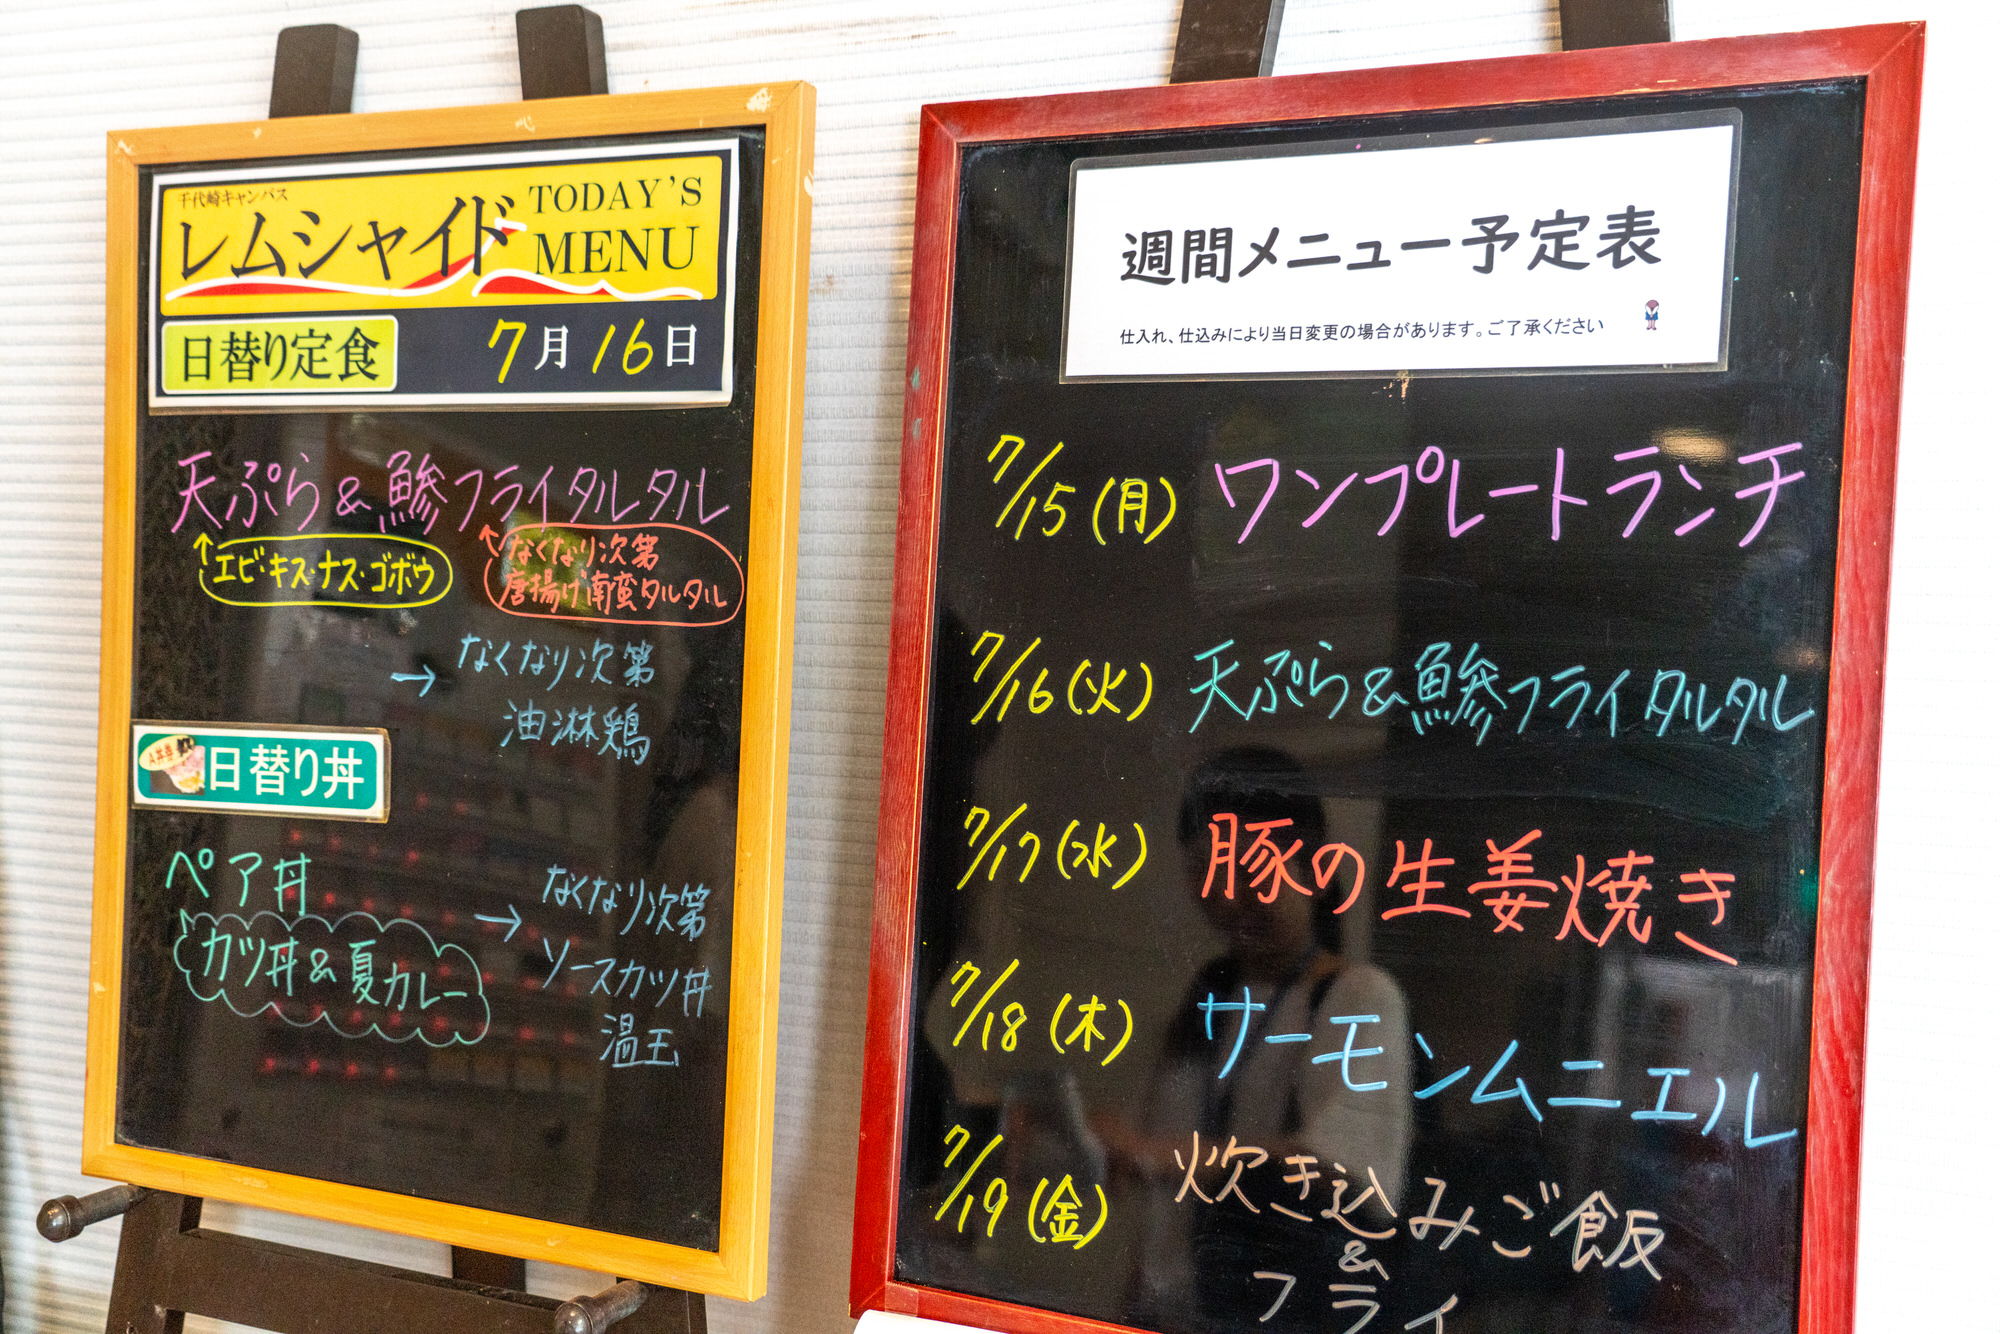 千代崎キャンパス
レムシャイド
TODAY'S
MENU
日替り定食
7月16日
天ぷら&鯵フライタルタル
↑エビ・キス・ナス・ゴボウ
↑なくなり次第
唐揚げ南蛮タルタル
→なくなり次第
油淋鶏
A丼
日替り丼
ペア丼
カツ丼&夏カレー
→なくなり次第
ソースカツ丼
温玉
週間メニュー予定表
仕入れ、仕込みにより当日変更の場合があります。ご了承ください
7/15(月) ワンプレートランチ
7/16(火) 天ぷら&鯵フライタルタル
7/17(水) 豚の生姜焼き
7/18(木) サーモンムニエル
7/19(金) 炊き込みご飯
&
フライ